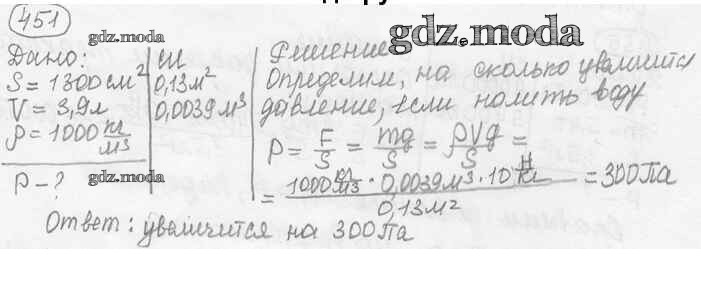 451
gdz.moda
Дано:
S = 1300 см²
V = 3,9 л
ρ = 1000 кг/м³
p - ?
gdz.moda
СИ
0,13 м²
0,0039 м³
Решение
gdz.moda
Определим, на сколько увеличится
давление, если налить воду
p = F/S = mg/S = ρVg/S =
= 1000 кг/м³ · 0,0039 м³ · 10 Н/кг / 0,13 м² = 300 Па
Ответ: увеличится на 300 Па